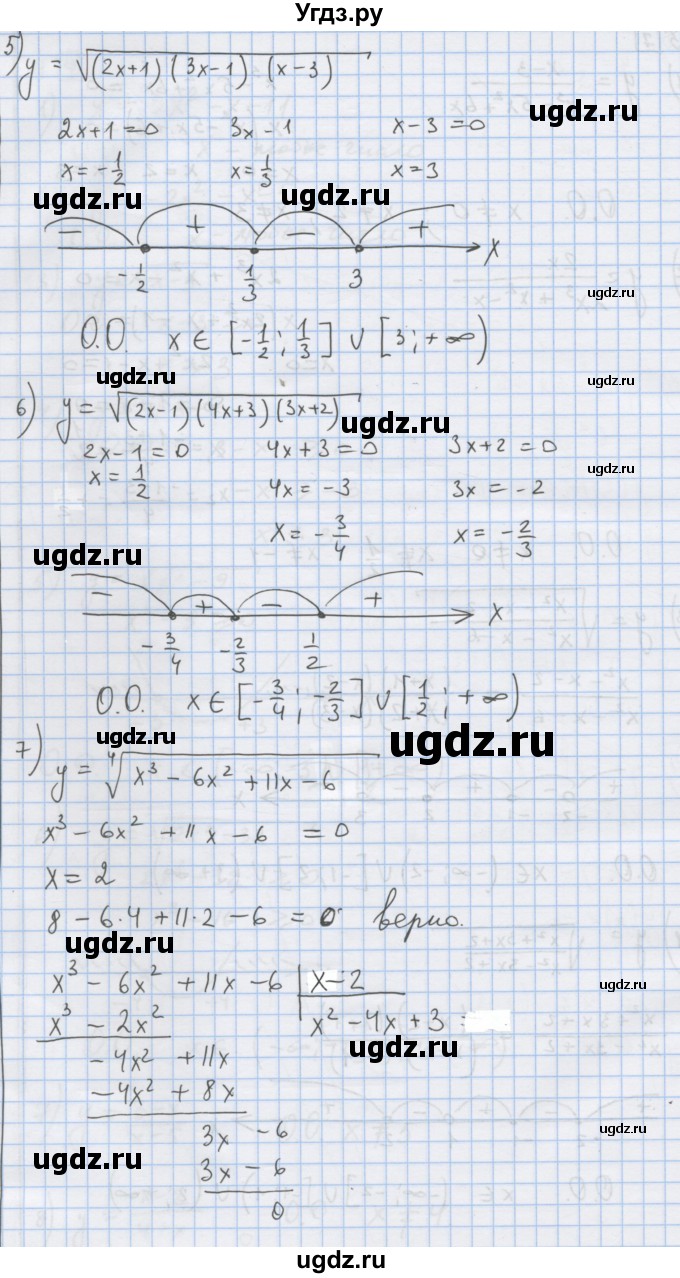 Угдз.ру
5) y = √((2x+1) (3x-1) (x-3))
2x+1=0 3x-1 x-3=0
x=-1/2 x=1/3 x=3
ugdz.ru
ugdz.ru
ugdz.ru
- + - + x
-1/2 1/3 3
ugdz.ru
О.О. x ∈ [-1/2; 1/3] ∪ [3; +∞)
ugdz.ru
ugdz.ru
6) y = √((2x-1) (4x+3) (3x+2))
ugdz.ru
2x-1=0 4x+3=0 3x+2=0
x=1/2 4x=-3 3x=-2
ugdz.ru
x=-3/4 x=-2/3
ugdz.ru
- + - + x
-3/4 -2/3 1/2
О.О. x∈[-3/4; -2/3] ∪ [1/2; +∞)
ugdz.ru
ugdz.ru
7) y = ⁴√(x³ - 6x² + 11x - 6)
x³ - 6x² + 11x - 6 = 0
x = 2
8 - 6·4 + 11·2 - 6 = 0 верно.
ugdz.ru
x³ - 6x² + 11x - 6 | x-2
ugdz.ru
x³ - 2x² x² - 4x + 3 =
ugdz.ru
-4x² + 11x
-4x² + 8x
3x - 6
ugdz.ru
ugdz.ru
3x - 6
0
ugdz.ru